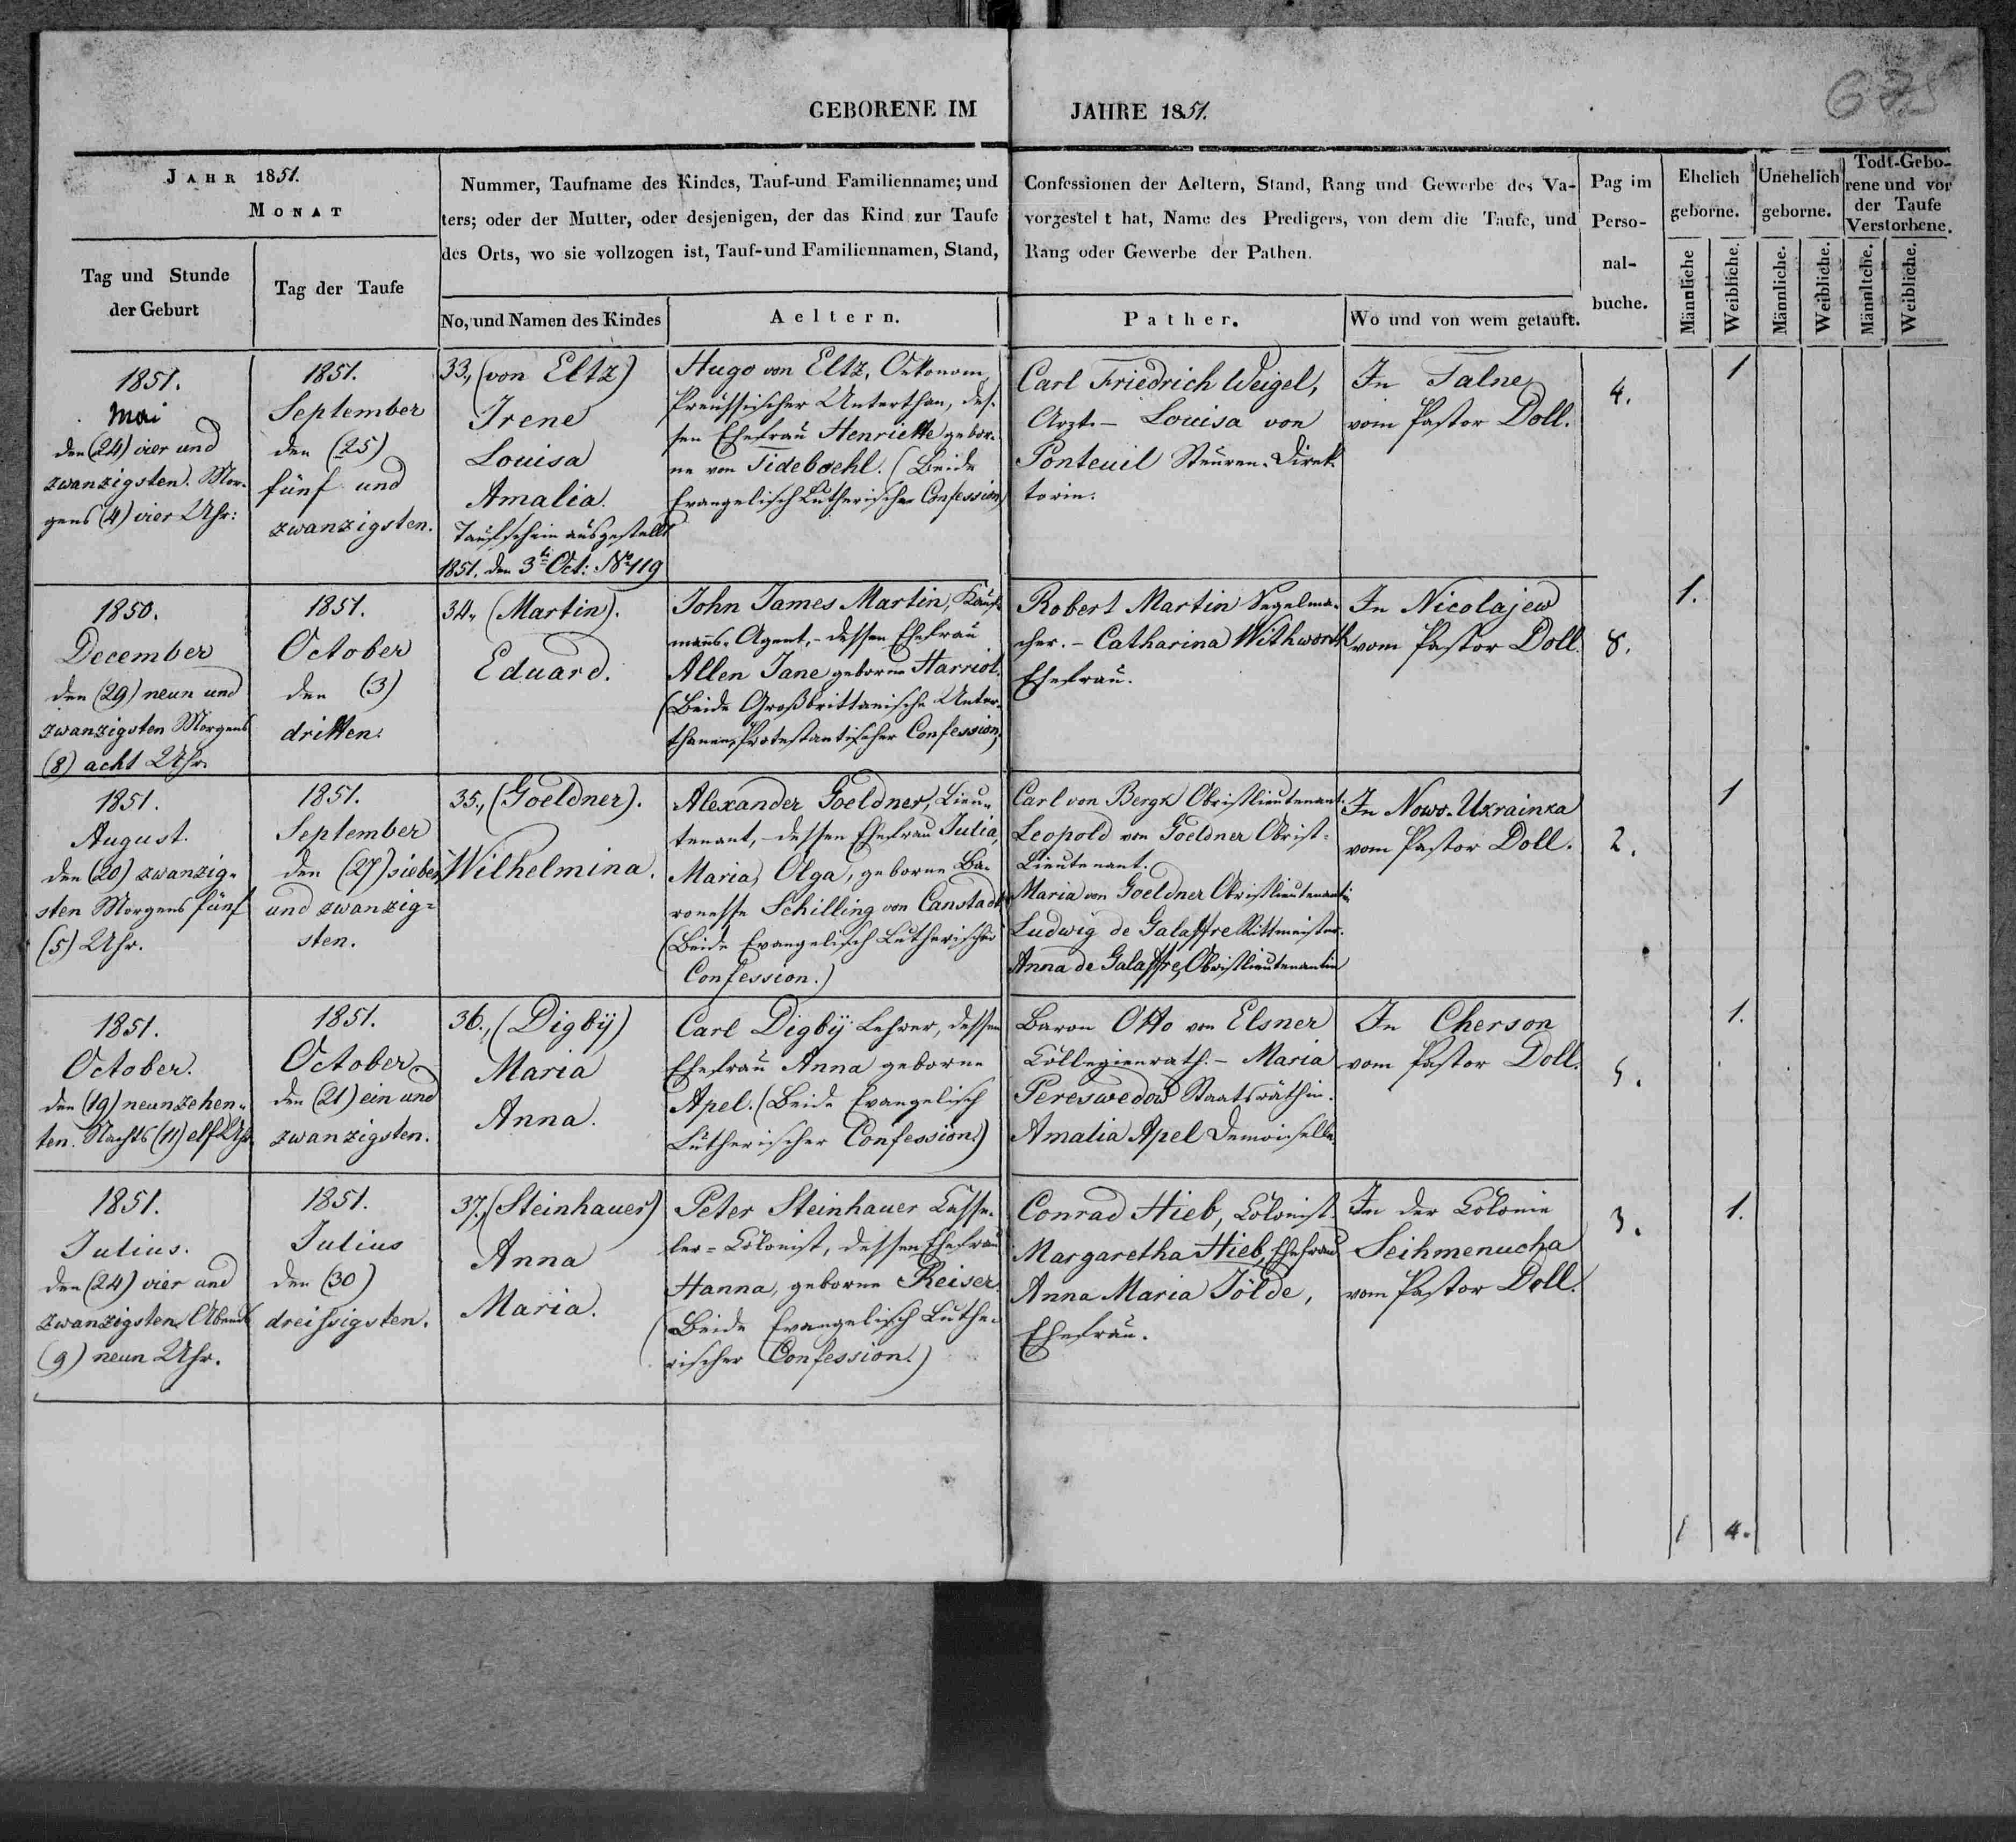 675
GEBORENE IM JAHRE 1851.
JAHR 1851.
MONAT
Tag und Stunde
der Geburt
Tag der Taufe
Nummer, Taufname des Kindes, Tauf-und Familienname; und Confessionen der Aeltern, Stand, Rang und Gewerbe des Va-
ters; oder der Mutter, oder desjenigen, der das Kind zur Taufe vorgestel t hat, Name des Predigers, von dem die Taufe, und
des Orts, wo sie vollzogen ist, Tauf-und Familiennamen, Stand, Rang oder Gewerbe der Pathen.
No, und Namen des Kindes
Aeltern.
Pather.
Wo und von wem getauft.
Pag im
Perso-
nal-
buche.
Ehelich
geborne.
Unehelich
geborne.
Todt-Gebo-
rene und vor
der Taufe
Verstorbene.
Männliche
Weibliche.
Männliche.
Weibliche.
Männltche.
Weibliche.
1851.
Mai
den (24) vier und
zwanzigsten. Mor-
gens (4) vier Uhr:
1851.
September
den (25)
fünf und
zwanzigsten.
33., (von Eltz)
Irene
Louisa
Amalia.
Taufschein ausgestellt
1851. den 3ti Oct: No 119
Hugo von Eltz, Oekonom,
Preussischer Unterthan, des-
sen Ehefrau Henriette gebor-
ne von Tideboehl. (Beide
Evangelisch Lutherischer Confession)
Carl Friedrich Weigel,
Arzt. - Louisa von
Ponteuil Steuren-Direk-
torin.
In Talne
vom Pastor Doll.
4.
1
1850.
December
den (29) neun und
zwanzigsten Morgens
(8) acht Uhr.
1851.
October
den (3)
dritten.
34., (Martin).
Eduard.
John James Martin, Kauf-
manns-Agent, - dessen Ehefrau
Allen Jane geborne Harriot.
(Beide Großbrittanische Unter-
thanen, Protestantischer Confession)
Robert Martin Segelma-
cher. - Catharina Withworth
Ehefrau.
In Nicolajew
vom Pastor Doll.
8.
1.
1851.
August.
den (20) zwanzig-
sten Morgens fünf
(5) Uhr.
1851.
September
den (27) sieben
und zwanzig=
sten.
35., (Goeldner).
Wilhelmina.
Alexander Goeldner, Lieu-
tenant, - dessen Ehefrau Julia,
Maria, Olga, geborne Ba-
ronesse Schilling von Canstadt
(Beide Evangelisch Lutherischer
Confession.)
Carl von Bergk Obristlieutenant.
Leopold von Goeldner Obrist-
Lieutenant.
Maria von Goeldner Obristlieutenantin
Ludwig de Galaffre Rittmeister.
Anna de Galaffre, Obristlieutenantin
In Nowo-Ukrainka
vom Pastor Doll.
2.
1
1851.
October.
den (19) neunzehen-
ten. Nachts (11) elf Uhr
1851.
October
den (21) ein und
zwanzigsten.
36., (Digbÿ)
Maria
Anna.
Carl Digbÿ Lehrer, dessen
Ehefrau Anna geborne
Apel. (Beide Evangelisch
Lutherischer Confession.)
Baron Otto von Elsner
Collegienrath. - Maria
Pereswedow Staatsräthin.
Amalia Apel Demoiselle.
In Cherson
vom Pastor Doll.
5.
1.
1851.
Julius.
den (24) vier und
zwanzigsten Abends
(9) neun Uhr.
1851.
Julius
den (30)
dreissigsten.
37., (Steinhauer)
Anna
Maria.
Peter Steinhauer Casse-
ler=Colonist, dessen Ehefrau
Hanna, geborne Reiser.
(Beide Evangelisch Luthe-
rischer Confession.)
Conrad Hieb, Colonist.
Margaretha Hieb, Ehefrau
Anna Maria Jölde,
Ehefrau.
In der Colonie
Seihmenucha
vom Pastor Doll.
3.
1.
1 4.